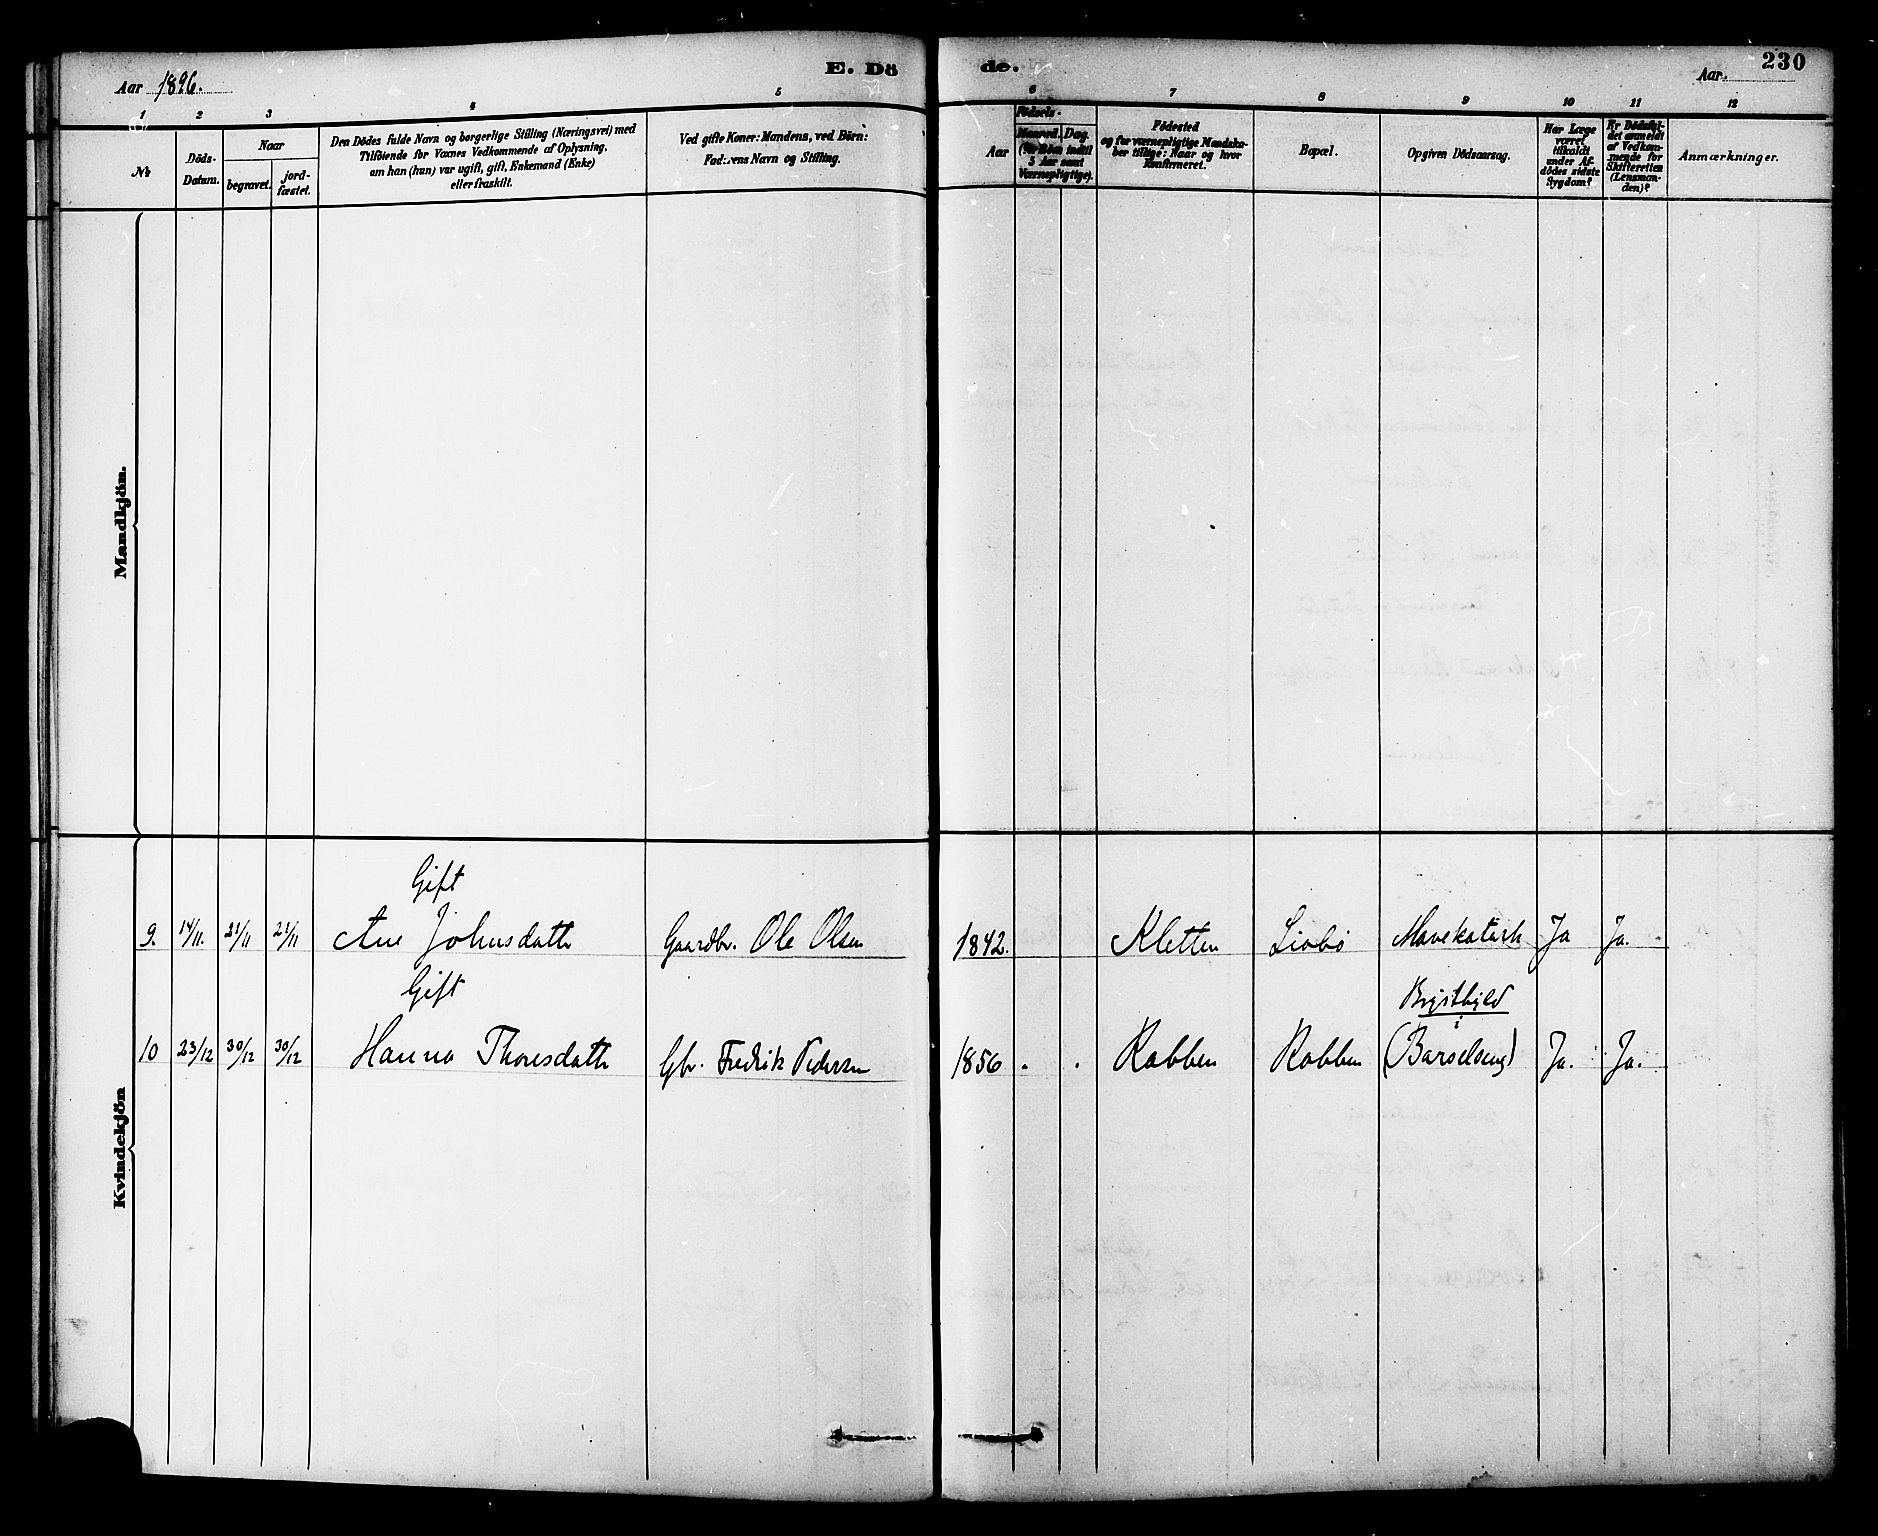 230
E. Dö de.
Aar 1896. Aar.
1 2 3 4 5 6 7 8 9 10 11 12
No
Döds-
Datum.
Naar
begravet.
jord-
fæstet.
Den Dödes fulde Navn og borgerlige Stilling (Næringsvei) med
Tilföiende for Voxnes Vedkommende af Oplysning,
om han (hun) var ugift, gift, Enkemand (Enke)
eller fraskilt.
Ved gifte Koner: Mandens, ved Börn:
Faderens Navn og Stilling.
Födsels-
Aar
Maaned. Dag.
(for Börn indtil
5 Aar samt
Værnepligtige).
Födested
og for værnepligtige Mandska-
ber tillige: Naar og hvor
konfirmeret.
Bopæl.
Opgiven Dödsaarsag.
Har Læge
været
tilkaldt
under Af-
dödes sidste
Sygdom?
Er Dödsfal-
det anmeldt
af Vedkom-
mende for
Skifteretten
(Lensman-
den)?
Anmærkninger.
Mandkjön.
Kvindekjön
Gift
9. 14/11. 21/11 21/11 Ane Johnsdatte Gaardbr. Ole Olsen 1842. Kletten Liabö Mavekatarh Ja Ja.
Gift
Brystbyld
10 23/12 30/12 30/12 Hanna Thoresdatte Gbr. Fredrik Pedersen 1856 Rabben Rabben (Barselseng) Ja. Ja.